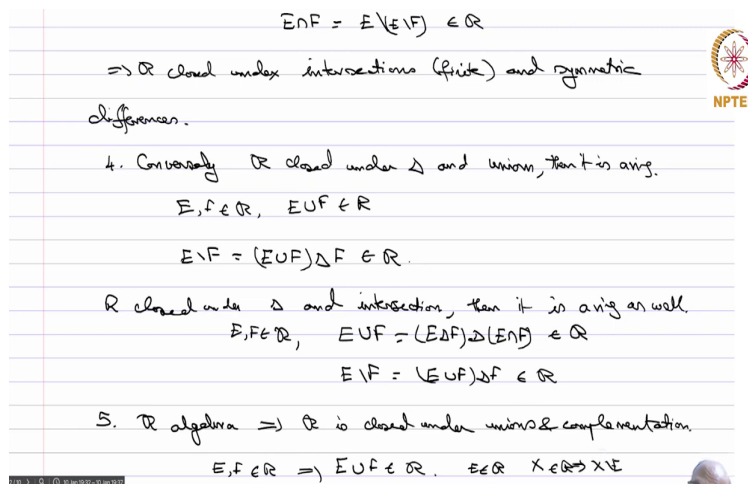 E∩F = E\(E\F) ∈ R
NPTE
=> R closed under intersections (finite) and symmetric
differences.
4. Conversely R closed under Δ and unions, then it is a ring.
E, F ∈ R, E∪F ∈ R
E\F = (E∪F)ΔF ∈ R.
R closed under Δ and intersection, then it is a ring as well.
E, F ∈ R, E∪F = (EΔF)Δ(E∩F) ∈ R
E\F = (E∪F)ΔF ∈ R
5. R algebra => R is closed under unions & complementation.
E, F ∈ R => E∪F ∈ R. E∈R X ∈ R => X\E